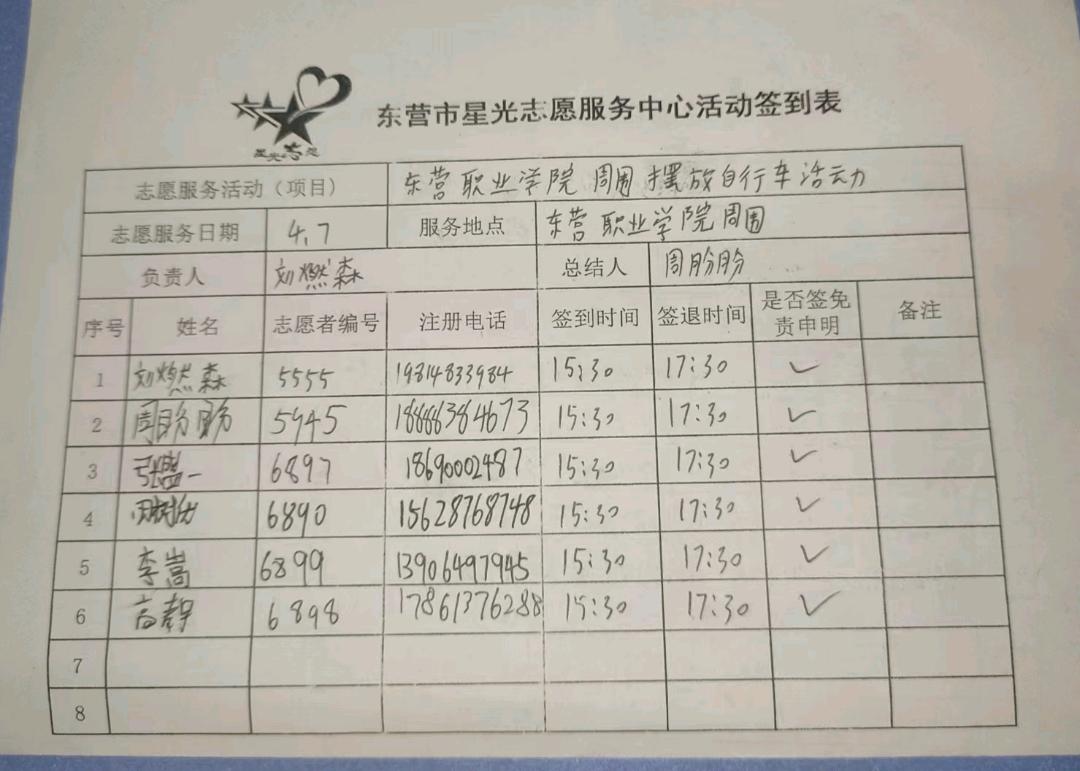 星光志愿
东营市星光志愿服务中心活动签到表
志愿服务活动（项目） 东营职业学院周围摆放自行车活动
志愿服务日期 4.7 服务地点 东营职业学院周围
负责人 刘燃森 总结人 周盼盼
序号 姓名 志愿者编号 注册电话 签到时间 签退时间 是否签免责申明 备注
1 刘燃森 5555 19814833984 15:30 17:30 ✓
2 周盼盼 5945 18886384673 15:30 17:30 ✓
3 6897 18690002487 15:30 17:30 ✓
4 6890 15628768748 15:30 17:30 ✓
5 李嵩 6899 13906497945 15:30 17:30 ✓
6 高静 6898 17861376288 15:30 17:30 ✓
7
8